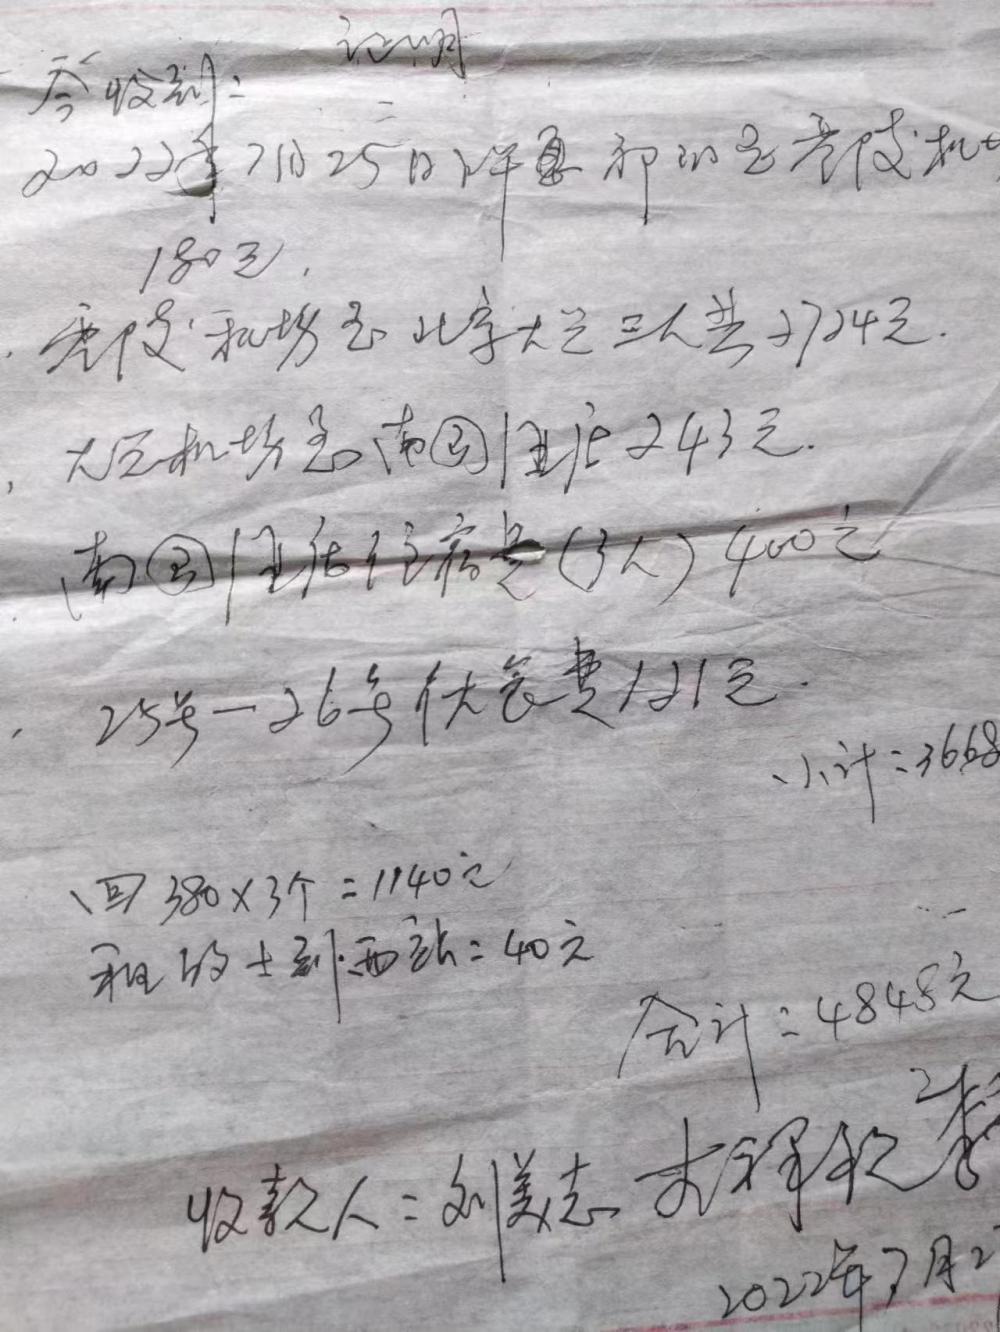 证明
今收到：
2022年7月25日 至老陵机
180元.
老陵机场至北京大兴三人共2724元.
大兴机场至南国 店243元.
南国 店住宿费(3人)400元
25号—26号伙食费121元.
小计：3668
回380×3个=1140元
租的士到西站：40元
合计：4848元
收款人：刘美志
2022年7月2